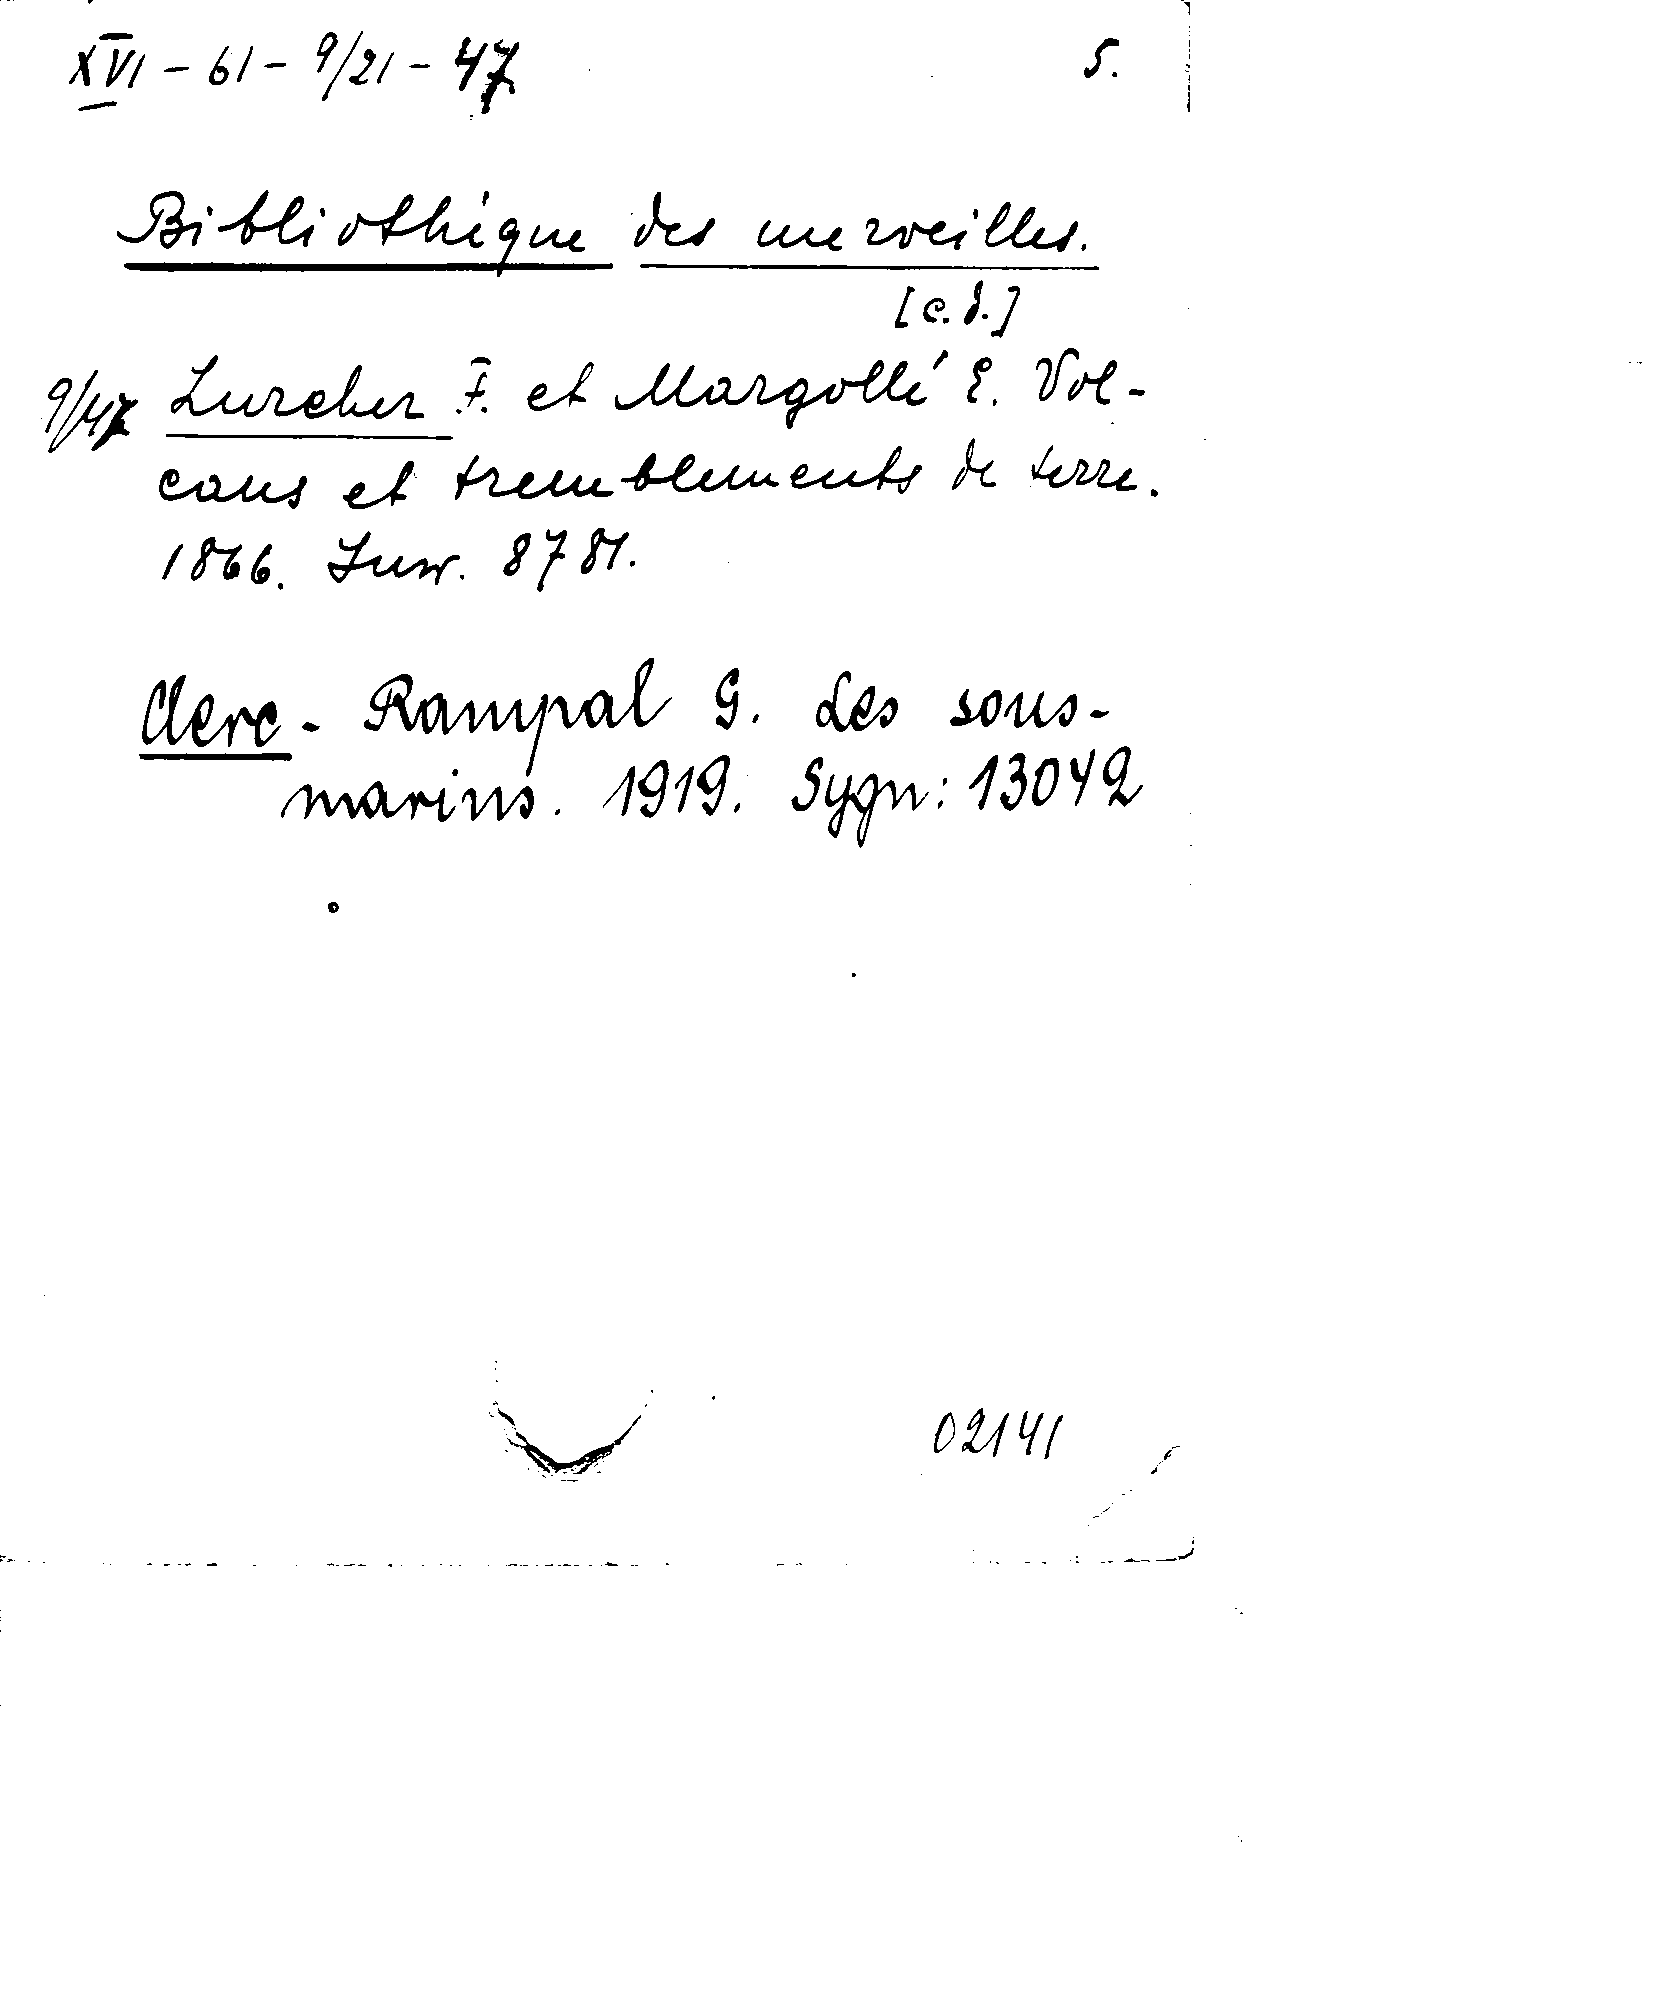 XVI - 61 - 9/21 - 47 5.
Bibliothèque des merveilles.
[c.d.]
9/47 Zurcher F. et Margollé E. Vol-
cans et tremblements de terre.
1866. Inw. 8781.
Clerc - Rampal G. Les sous-
marins. 1919. Sygn: 13042
02141